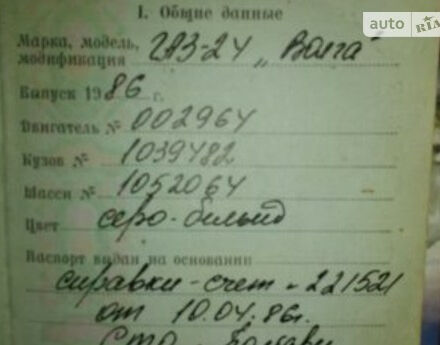 auto RIA
I. Общие данные
Марка, модель, ГАЗ-24 „Волга"
модификация
Выпуск 1986 г.
Двигатель № 002964
Кузов № 1039482
Шасси № 1052064
Цвет серо-белый
Паспорт выдан на основании
справки-счет 221521
от 10.04.86г.